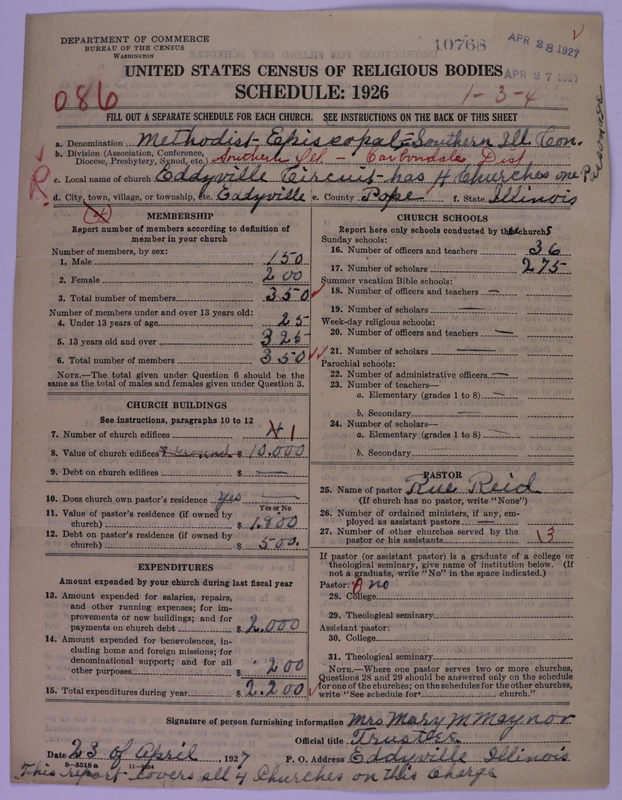 DEPARTMENT OF COMMERCE
BUREAU OF THE CENSUS
WASHINGTON
10768
APR 28 1927
APR 27 1927
UNITED STATES CENSUS OF RELIGIOUS BODIES
SCHEDULE: 1926
086
1-3-4
FILL OUT A SEPARATE SCHEDULE FOR EACH CHURCH. SEE INSTRUCTIONS ON THE BACK OF THIS SHEET
a. Denomination Methodist-Episcopal=Southern Ill Con.
b. Division (Association, Conference, Diocese, Presbytery, Synod, etc.) Southern Ill. - Carbondale Dist
c. Local name of church Eddyville Circuit-has 4 Churches one Parsonage
R
d. City, town, village, or township, etc. Eddyville e. County Pope f. State Illinois
(4)
MEMBERSHIP
Report number of members according to definition of member in your church
Number of members, by sex:
1. Male 150
2. Female 200
3. Total number of members 350
Number of members under and over 13 years old:
4. Under 13 years of age 25
5. 13 years old and over 325
6. Total number of members 350
NOTE.—The total given under Question 6 should be the same as the total of males and females given under Question 3.
CHURCH BUILDINGS
See instructions, paragraphs 10 to 12
7. Number of church edifices 4 1
8. Value of church edifices & Ground $ 10.000
9. Debt on church edifices $ —
10. Does church own pastor's residence yes
Yes or No
11. Value of pastor's residence (if owned by church) $ 1.800
12. Debt on pastor's residence (if owned by church) $ 500.
EXPENDITURES
Amount expended by your church during last fiscal year
13. Amount expended for salaries, repairs, and other running expenses; for improvements or new buildings; and for payments on church debt $ 2.000
14. Amount expended for benevolences, including home and foreign missions; for denominational support; and for all other purposes $ 200
15. Total expenditures during year $ 2.200
CHURCH SCHOOLS
Report here only schools conducted by the churchs
Sunday schools:
16. Number of officers and teachers 36
17. Number of scholars 275
Summer vacation Bible schools:
18. Number of officers and teachers —
19. Number of scholars —
Week-day religious schools:
20. Number of officers and teachers —
21. Number of scholars —
Parochial schools:
22. Number of administrative officers —
23. Number of teachers—
a. Elementary (grades 1 to 8) —
b. Secondary —
24. Number of scholars—
a. Elementary (grades 1 to 8) —
b. Secondary —
PASTOR
25. Name of pastor Rue Reid
(If church has no pastor, write "None")
26. Number of ordained ministers, if any, employed as assistant pastors —
27. Number of other churches served by the pastor or his assistants 3
If pastor (or assistant pastor) is a graduate of a college or theological seminary, give name of institution below. (If not a graduate, write "No" in the space indicated.)
Pastor: no
28. College
29. Theological seminary
Assistant pastor:
30. College
31. Theological seminary
NOTE.—Where one pastor serves two or more churches, Questions 28 and 29 should be answered only on the schedule for one of the churches; on the schedules for the other churches, write "See schedule for church."
Signature of person furnishing information Mrs Mary M Maynor
Official title Trustee
Date 23 of April, 1927 P. O. Address Eddyville Illinois
8-5518 a
This report covers all 4 Churches on this Charge